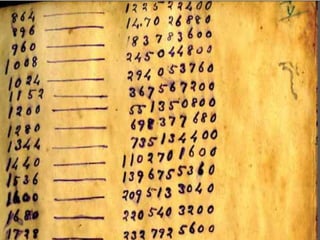 864 — 122522400
896 — 147026880
960 — 183783600
1008 — 245044800
1024 — 294053760
1152 — 367567200
1200 — 551350800
1280 — 698377680
1344 — 735134400
1440 — 1102701600
1536 — 1396755360
1600 — 2095133040
1680 — 2205403200
1728 — 2327925600